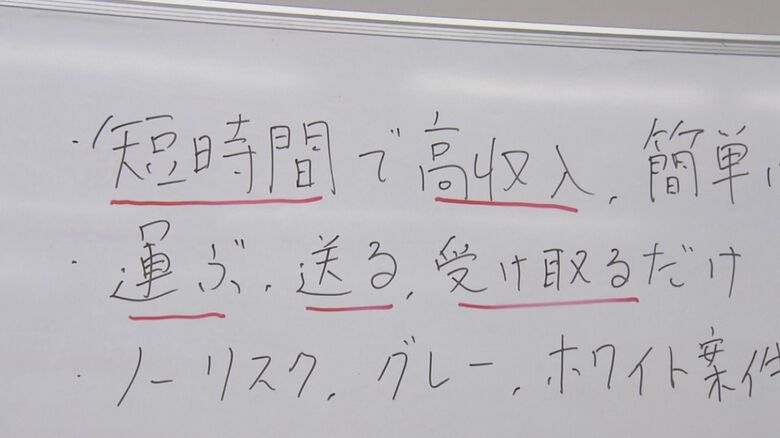 ・短時間で高収入、簡単に
・運ぶ、送る、受け取るだけ
・ノーリスク、グレー、ホワイト案件